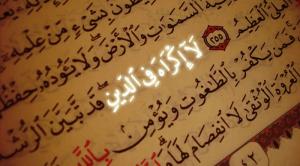 بِشَىْءٍ مِّنْ عِلْمِهِ
السَّمَٰوَٰتِ وَالْأَرْضَ ۖ وَلَا يَـُٔودُهُۥ حِفْظُهُ
الْعَلِىُّ الْعَظِيمُ ٢٥٥ لَا إِكْرَاهَ فِى الدِّينِ ۖ قَد تَّبَيَّنَ الرُّشْ
فَمَن يَكْفُرْ بِالطَّٰغُوتِ وَيُؤْمِنۢ بِاللَّهِ
الْوُثْقَىٰ لَا انفِصَامَ لَهَا ۗ